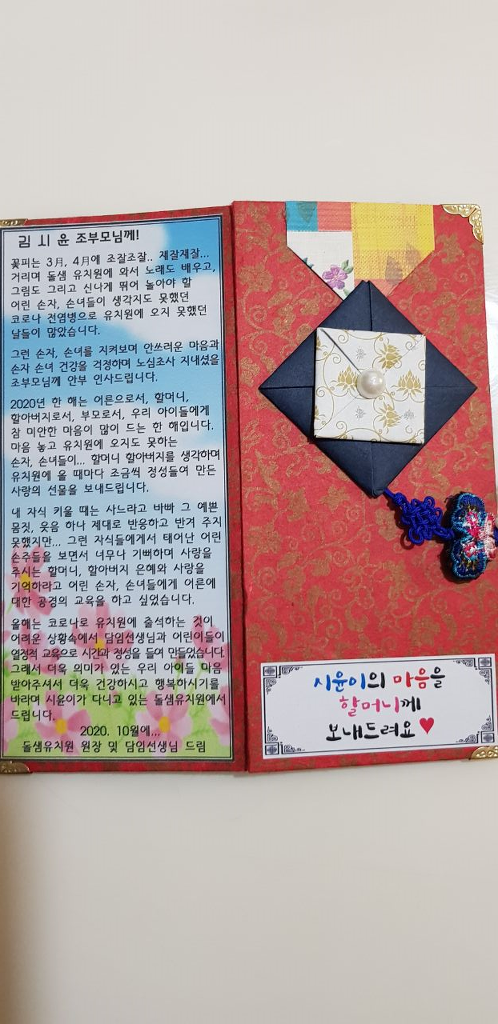 김 시 윤 조부모님께!
꽃피는 3月, 4月에 조잘조잘.. 재잘재잘...
거리며 돌샘 유치원에 와서 노래도 배우고,
그림도 그리고 신나게 뛰어 놀아야 할
어린 손자, 손녀들이 생각지도 못했던
코로나 전염병으로 유치원에 오지 못했던
날들이 많았습니다.
그런 손자, 손녀를 지켜보며 안쓰러운 마음과
손자 손녀 건강을 걱정하며 노심초사 지내셨을
조부모님께 안부 인사드립니다.
2020년 한 해는 어른으로서, 할머니,
할아버지로서, 부모로서, 우리 아이들에게
참 미안한 마음이 많이 드는 한 해입니다.
마음 놓고 유치원에 오지도 못하는
손자, 손녀들이... 할머니 할아버지를 생각하며
유치원에 올 때마다 조금씩 정성들여 만든
사랑의 선물을 보내드립니다.
내 자식 키울 때는 사느라고 바빠 그 예쁜
몸짓, 웃음 하나 제대로 반응하고 반겨 주지
못했지만... 그런 자식들에게서 태어난 어린
손주들을 보면서 너무나 기뻐하며 사랑을
주시는 할머니, 할아버지 은혜와 사랑을
기억하라고 어린 손자, 손녀들에게 어른에
대한 공경의 교육을 하고 싶었습니다.
올해는 코로나로 유치원에 출석하는 것이
어려운 상황속에서 담임선생님과 어린이들이
열정적 교육으로 시간과 정성을 들여 만들었습니다.
그래서 더욱 의미가 있는 우리 아이들 마음
받아주셔서 더욱 건강하시고 행복하시기를
바라며 시윤이가 다니고 있는 돌샘유치원에서
드립니다.
2020. 10월에...
돌샘유치원 원장 및 담임선생님 드림
시윤이의 마음을
할머니께
보내드려요♥